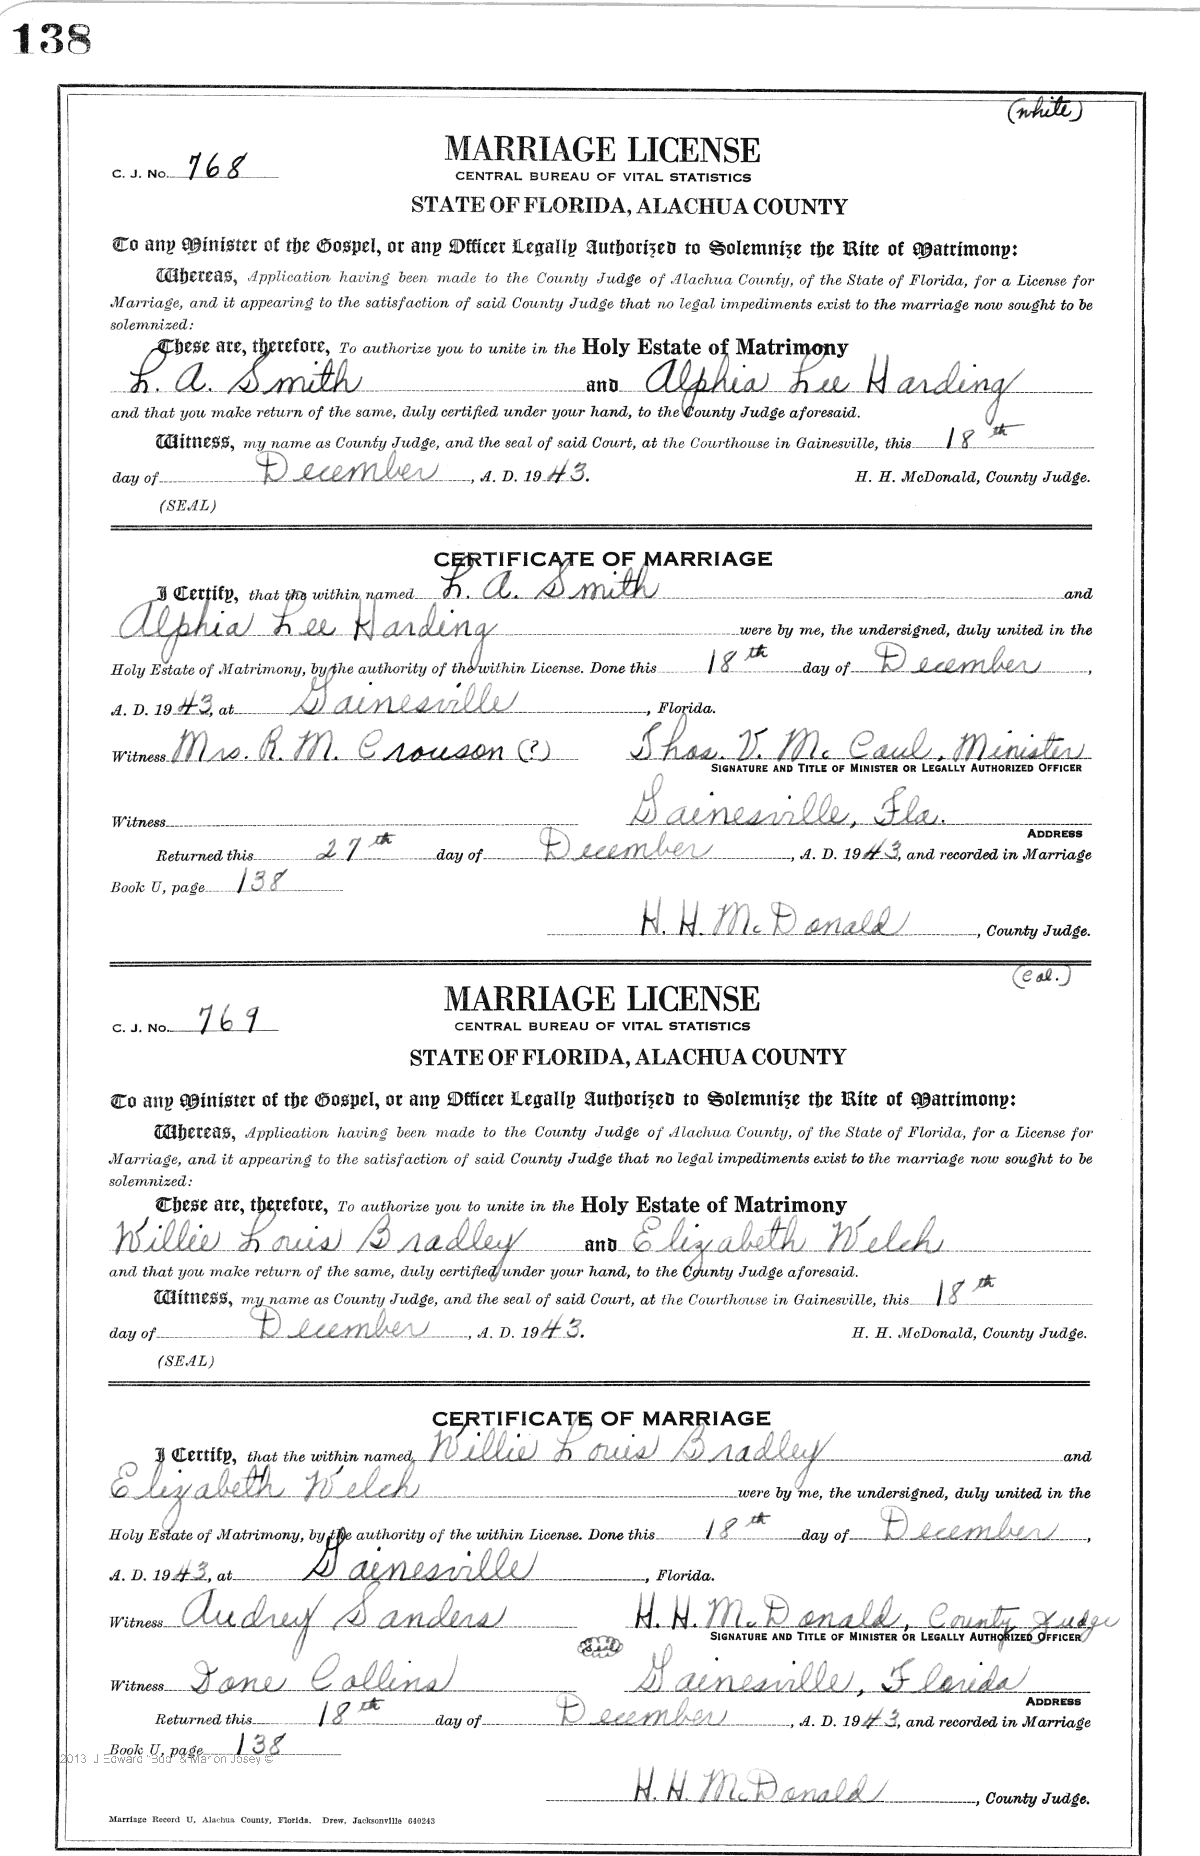 138
(white)
MARRIAGE LICENSE
C. J. No. 768
CENTRAL BUREAU OF VITAL STATISTICS
STATE OF FLORIDA, ALACHUA COUNTY
To any Minister of the Gospel, or any Officer Legally Authorized to Solemnize the Rite of Matrimony:
Whereas, Application having been made to the County Judge of Alachua County, of the State of Florida, for a License for
Marriage, and it appearing to the satisfaction of said County Judge that no legal impediments exist to the marriage now sought to be
solemnized:
These are, therefore, To authorize you to unite in the Holy Estate of Matrimony
L. A. Smith and Alphia Lee Harding
and that you make return of the same, duly certified under your hand, to the County Judge aforesaid.
Witness, my name as County Judge, and the seal of said Court, at the Courthouse in Gainesville, this 18th
day of December, A. D. 1943. H. H. McDonald, County Judge.
(SEAL)
CERTIFICATE OF MARRIAGE
I Certify, that the within named L. A. Smith and
Alphia Lee Harding were by me, the undersigned, duly united in the
Holy Estate of Matrimony, by the authority of the within License. Done this 18th day of December,
A. D. 1943, at Gainesville, Florida.
Witness Mrs. R. M. Crouson (?) Thos. V. McCaul, Minister
SIGNATURE AND TITLE OF MINISTER OR LEGALLY AUTHORIZED OFFICER
Witness Gainesville, Fla.
ADDRESS
Returned this 27th day of December, A. D. 1943, and recorded in Marriage
Book U, page 138
H. H. McDonald, County Judge.
(Col.)
MARRIAGE LICENSE
C. J. No. 769
CENTRAL BUREAU OF VITAL STATISTICS
STATE OF FLORIDA, ALACHUA COUNTY
To any Minister of the Gospel, or any Officer Legally Authorized to Solemnize the Rite of Matrimony:
Whereas, Application having been made to the County Judge of Alachua County, of the State of Florida, for a License for
Marriage, and it appearing to the satisfaction of said County Judge that no legal impediments exist to the marriage now sought to be
solemnized:
These are, therefore, To authorize you to unite in the Holy Estate of Matrimony
Willie Louis Bradley and Elizabeth Welch
and that you make return of the same, duly certified under your hand, to the County Judge aforesaid.
Witness, my name as County Judge, and the seal of said Court, at the Courthouse in Gainesville, this 18th
day of December, A. D. 1943. H. H. McDonald, County Judge.
(SEAL)
CERTIFICATE OF MARRIAGE
I Certify, that the within named, Willie Louis Bradley and
Elizabeth Welch were by me, the undersigned, duly united in the
Holy Estate of Matrimony, by the authority of the within License. Done this 18th day of December,
A. D. 1943, at Gainesville, Florida.
Witness Audrey Sanders H. H. McDonald, County Judge
SIGNATURE AND TITLE OF MINISTER OR LEGALLY AUTHORIZED OFFICER
Seal
Witness Done Collins Gainesville, Florida
ADDRESS
Returned this 18th day of December, A. D. 1943, and recorded in Marriage
Book U, page 138
2013 J Edward "Bud" & Marion Josey ©
H. H. McDonald, County Judge.
Marriage Record U, Alachua County, Florida. Drew, Jacksonville 640243